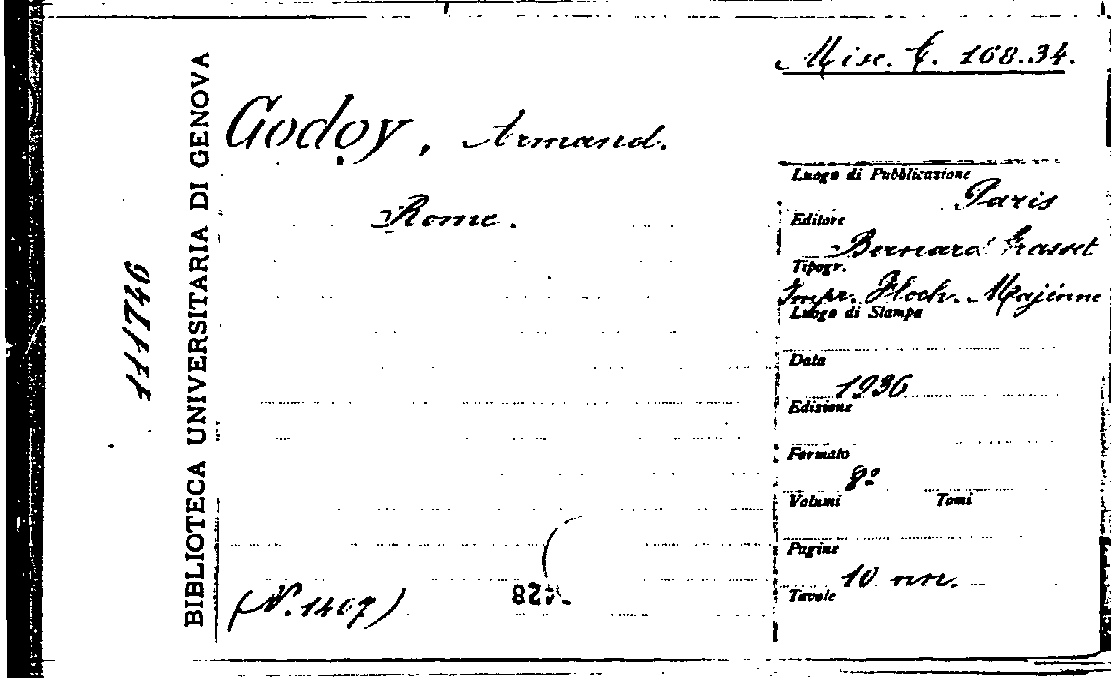 Misc. G. 168.34.
Godoy, Armand.
Rome.
BIBLIOTECA UNIVERSITARIA DI GENOVA
111746
Luogo di Pubblicazione
Paris
Editore
Bernard Grasset
Tipogr.
Impr. Floch. Majenne
Luogo di Stampa
Data
1936
Edizione
Formato
8º
Volumi Tomi
Pagine
10 nn.
Tavole
(N. 1407)
428